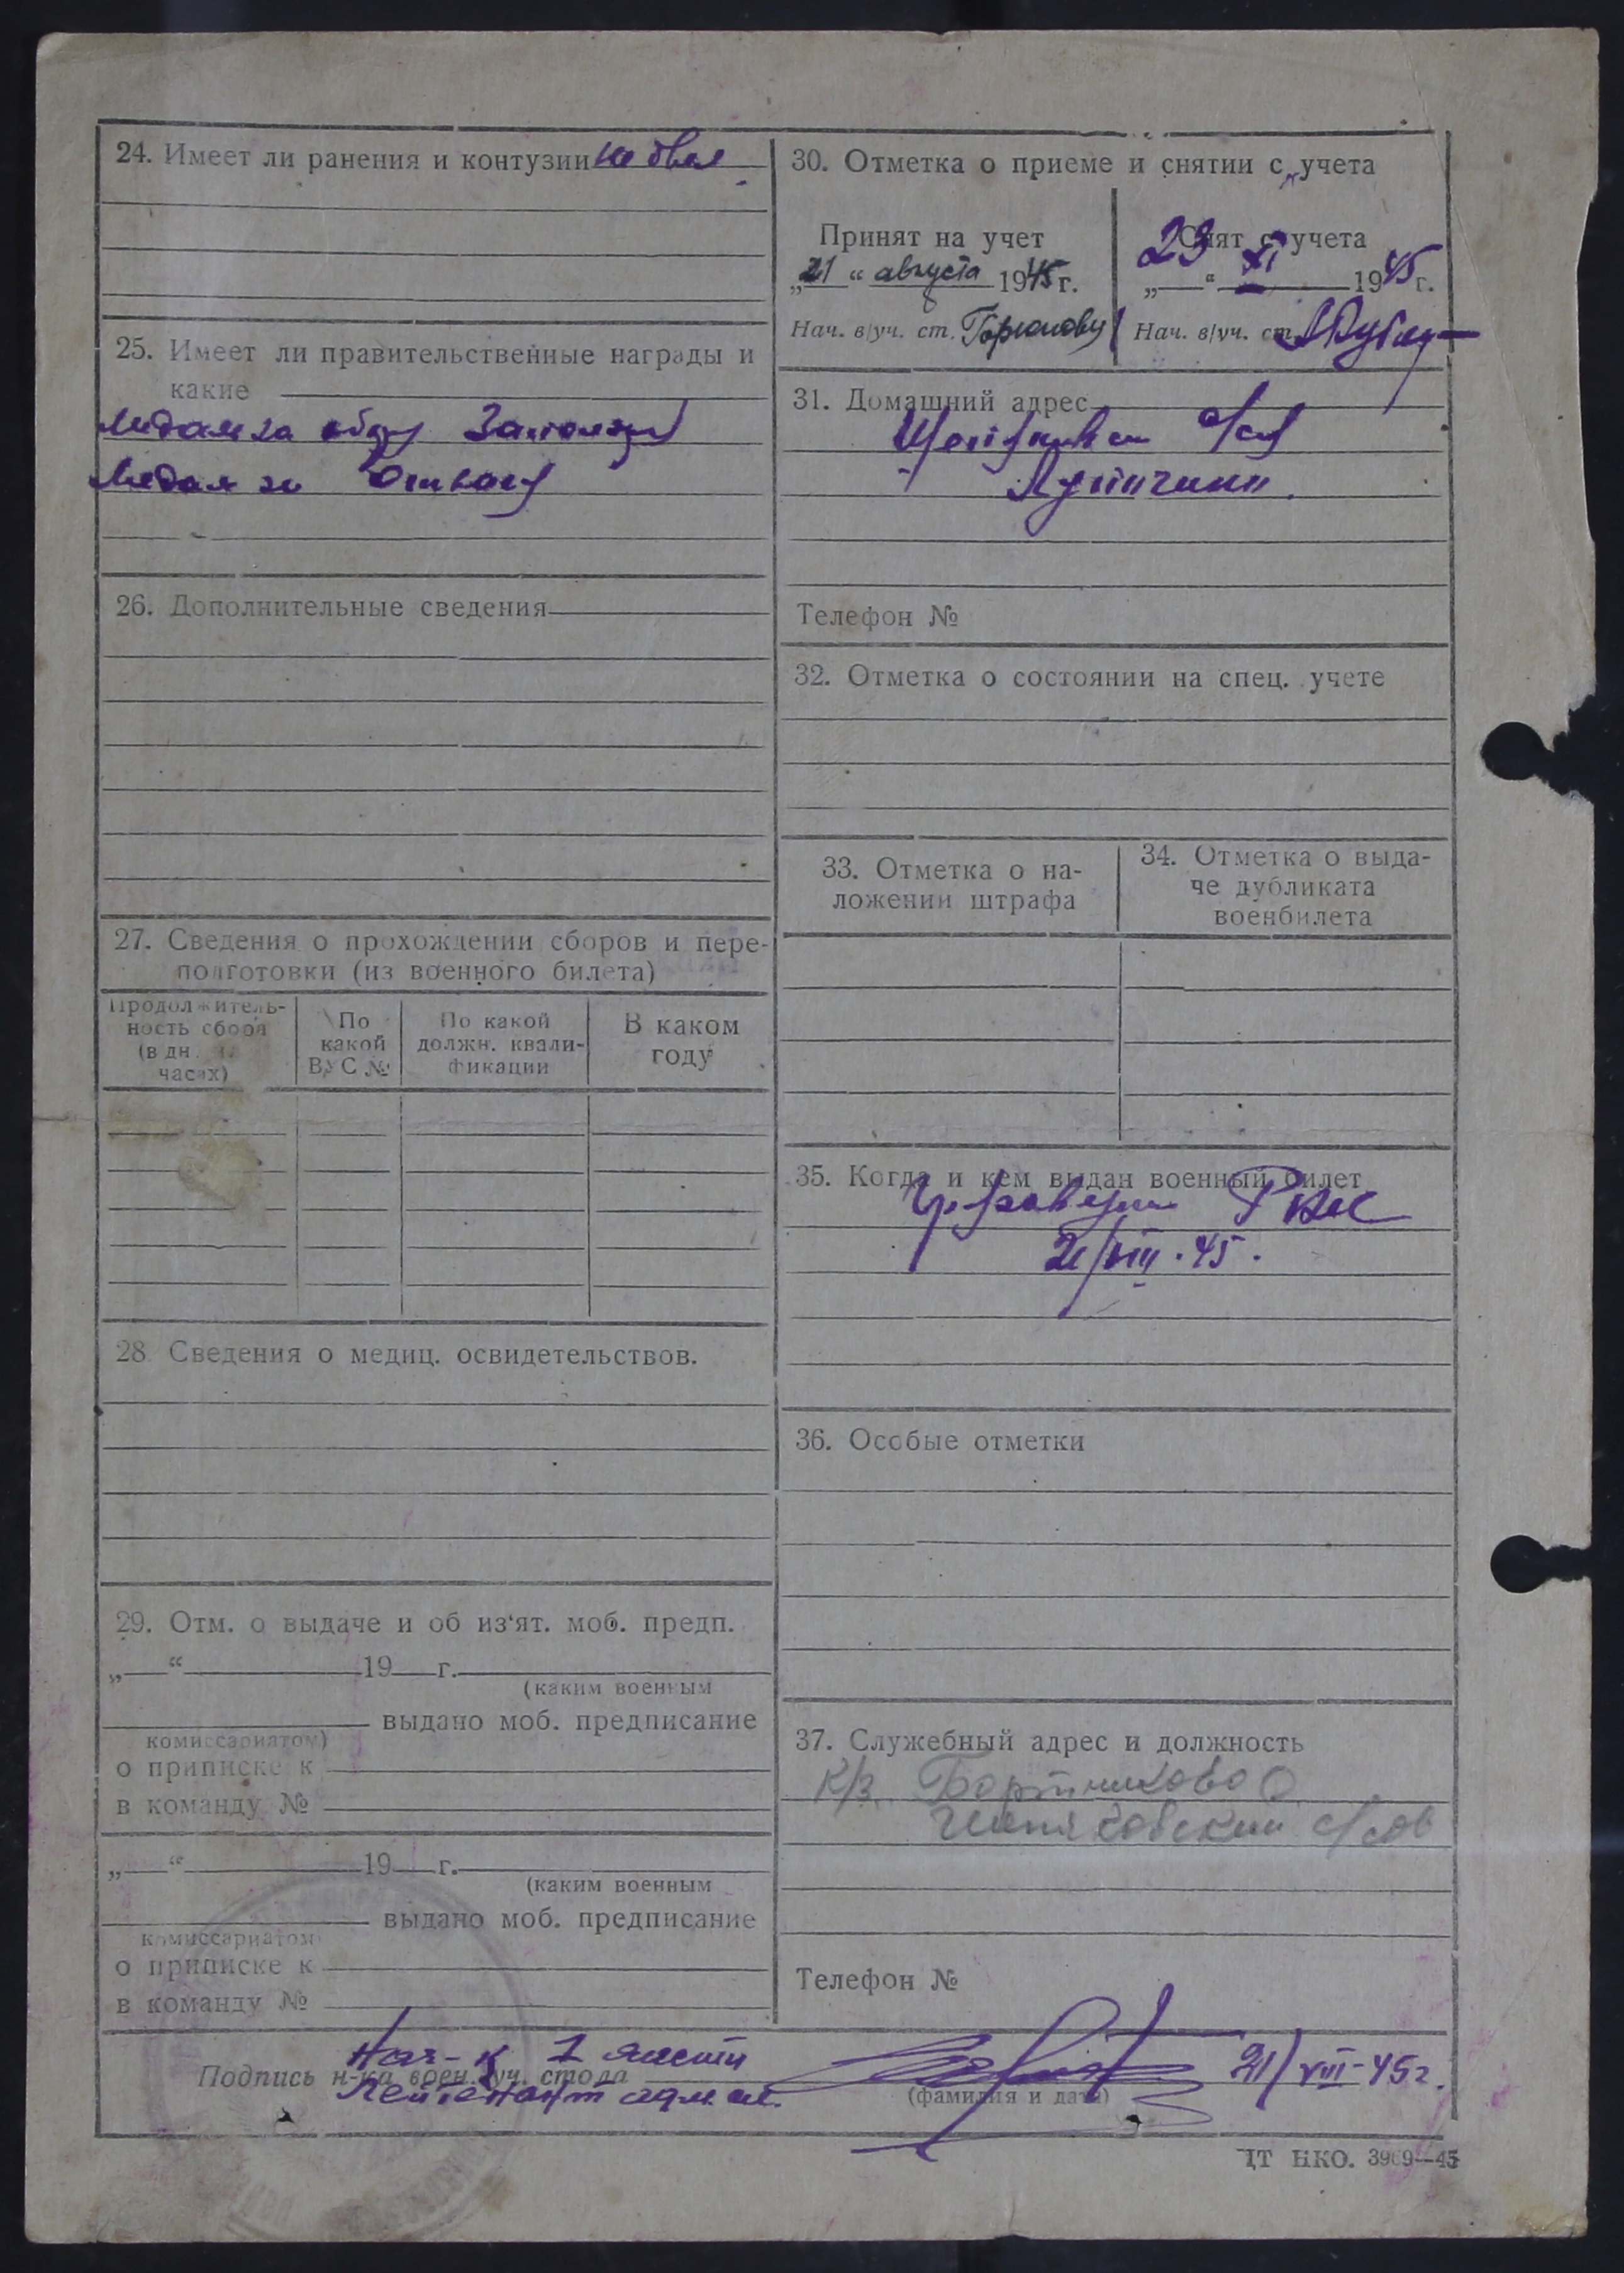 24. Имеет ли ранения и контузии не был
25. Имеет ли правительственные награды и
какие
Медаль за обор Заполярья
Медаль за Отвагу
26. Дополнительные сведения
27. Сведения о прохождении сборов и пере-
подготовки (из военного билета)
Продолжитель-
ность сбора
(в дн.
часах)
По
какой
ВУС №
По какой
должн. квали-
фикации
В каком
году
28 Сведения о медиц. освидетельствов.
29. Отм. о выдаче и об из'ят. моб. предп.
„ “ 19 г.
(каким военным
выдано моб. предписание
комиссариатом)
о приписке к
в команду №
„ “ 19 г.
(каким военным
выдано моб. предписание
комиссариатом
о приписке к
в команду №
30. Отметка о приеме и снятии с учета
Принят на учет
„21“ августа 1945 г.
Нач. в/уч. ст.
Снят с учета
23 XI 1945 г.
Нач. в/уч. ст.
31. Домашний адрес
с/с
Телефон №
32. Отметка о состоянии на спец. учете
33. Отметка о на-
ложении штрафа
34. Отметка о выда-
че дубликата
военбилета
35. Когда и кем выдан военный билет
РВК
21/VIII.45.
36. Особые отметки
37. Служебный адрес и должность
к/з. Бортниково
с/сов
Телефон №
Нач-к 1 части
Подпись н-ка воен. уч. стола
Лейтенант адм. сл.
21/VIII-45г.
(фамилия и дата)
ЦТ НКО. 3909—45